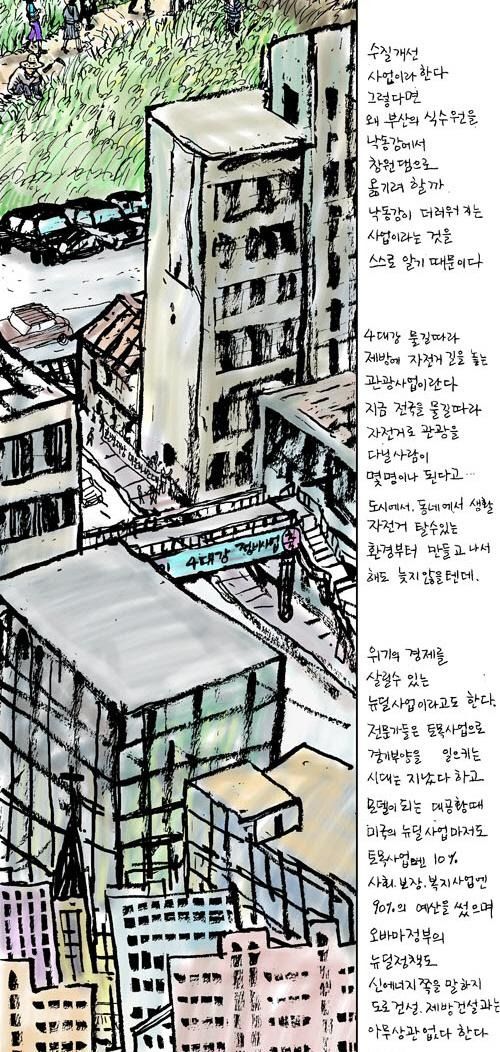 수질개선
사업이라 한다
그렇다면
왜 부산의 식수원을
낙동강에서
창원댐으로
옮기려 할까.
낙동강이 더러워지는
사업이라는 것을
스스로 알기 때문이다
4대강 물길따라
제방에 자전거 길을 놓는
관광사업이란다
지금 전국을 물길따라
자전거로 관광을
다닐 사람이
몇명이나 된다고…
도시에서, 동네에서 생활
자전거 탈수있는
환경부터 만들고 나서
해도 늦지 않을텐데.
4대강 정비사업
위기의 경제를
살릴수 있는
뉴딜사업이라고도 한다.
전문가들은 토목사업으로
경기부양을 일으키는
시대는 지났다 하고
모델이 되는 대공황때
미국의 뉴딜사업마저도
토목사업엔 10%
사회.보장.복지사업엔
90%의 예산을 썼으며
오바마정부의
뉴딜정책도
신에너지쪽을 말하지
도로건설.제방건설과는
아무상관없다 한다.